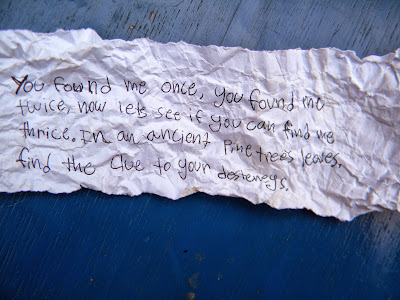 You found me once, you found me
twice, now lets see if you can find me
thrice. In an ancient Pine trees leaves.
find the Clue to your desteneys.